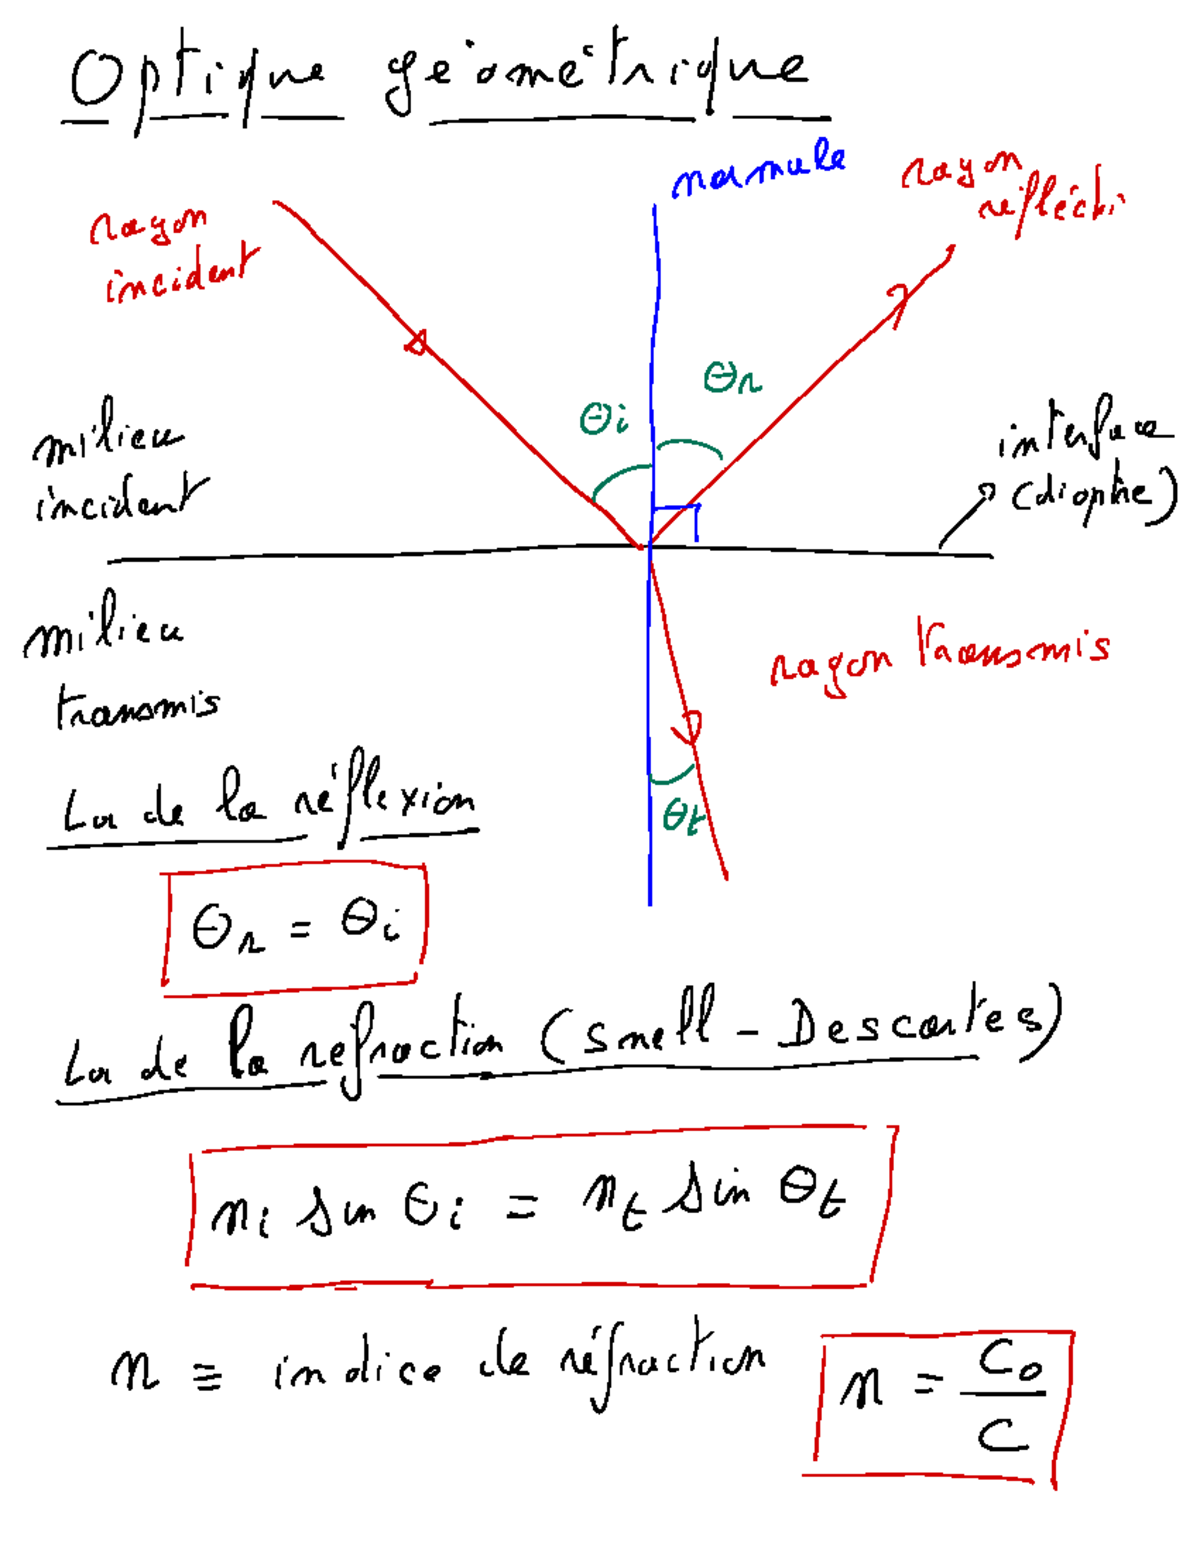 Optique géométrique
normale
rayon
réfléchi
rayon
incident
θr
θi
milieu
incident
interface
(dioptre)
milieu
transmis
rayon transmis
θt
Loi de la réflexion
θr = θi
Loi de la réfraction (Snell - Descartes)
ni sin θi = nt sin θt
n ≡ indice de réfraction
n = C₀/C